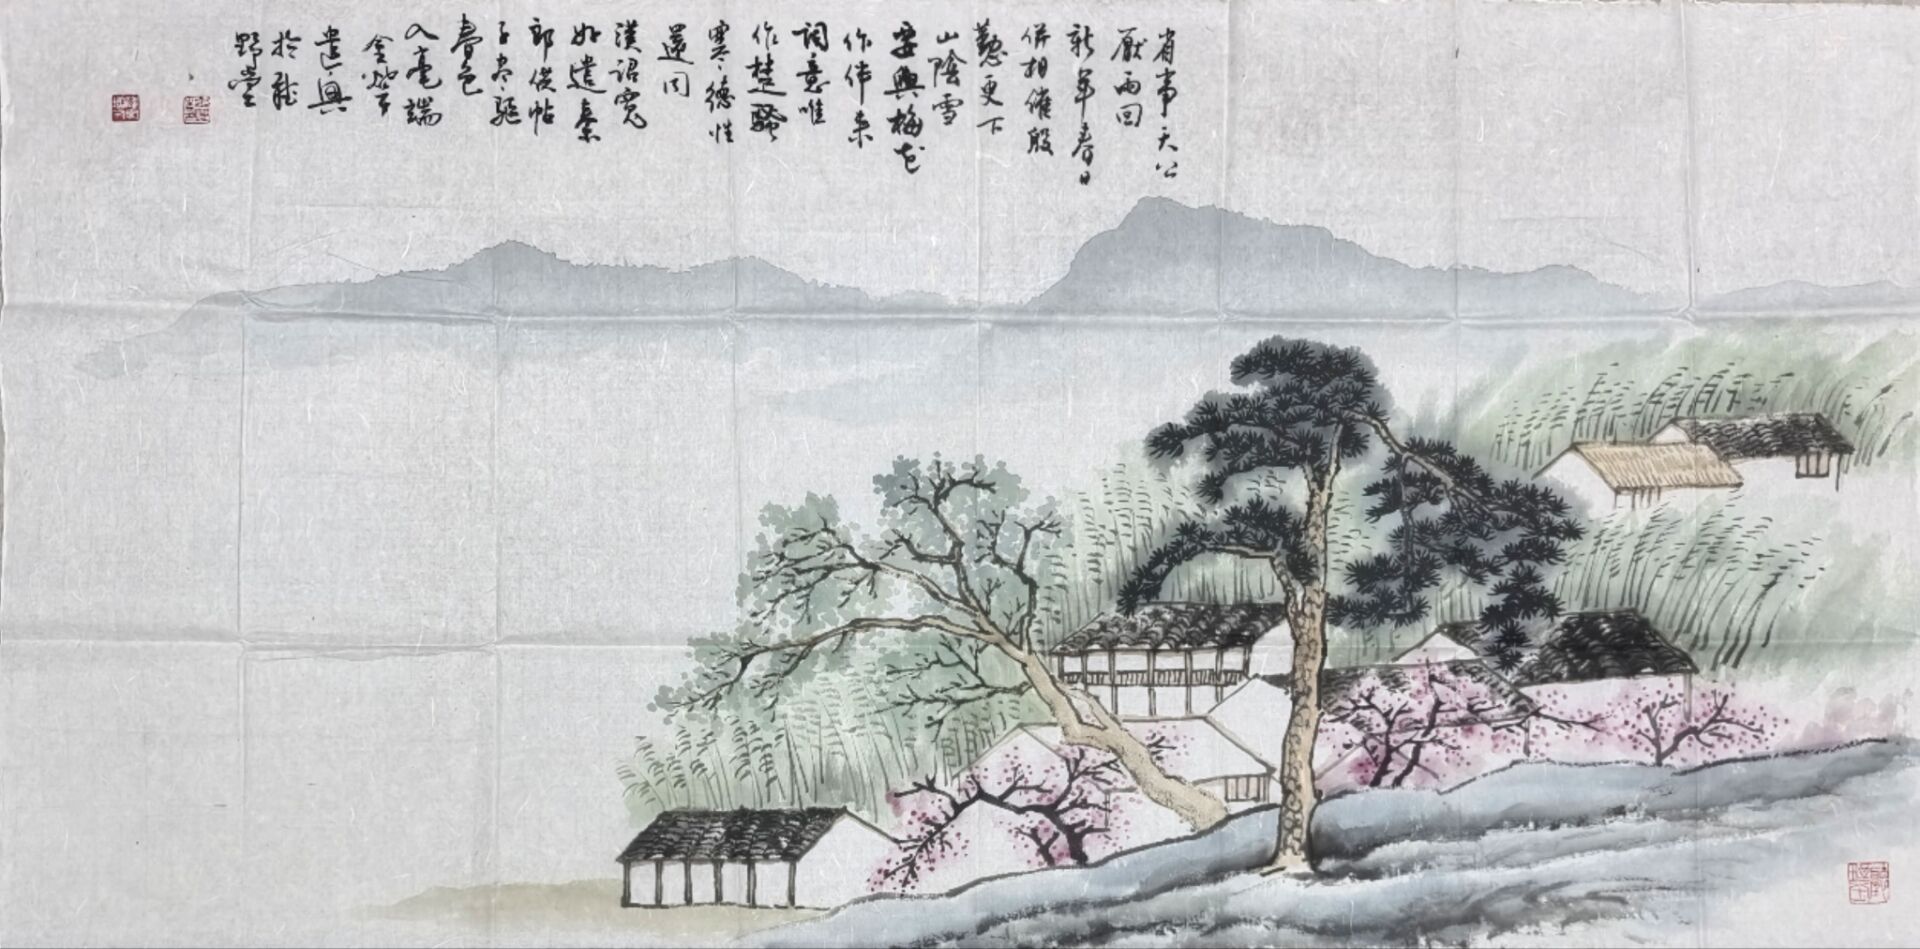 省事天公
厭兩回
新年春日
併相催殷
懃更下
山陰雪
要與梅花
作伴來
詞意唯
作楚騷
寒德性
還同
漢詔寬
好遣秦
郎供帖
子盡驅
春色
入毫端
遣興
於
野堂